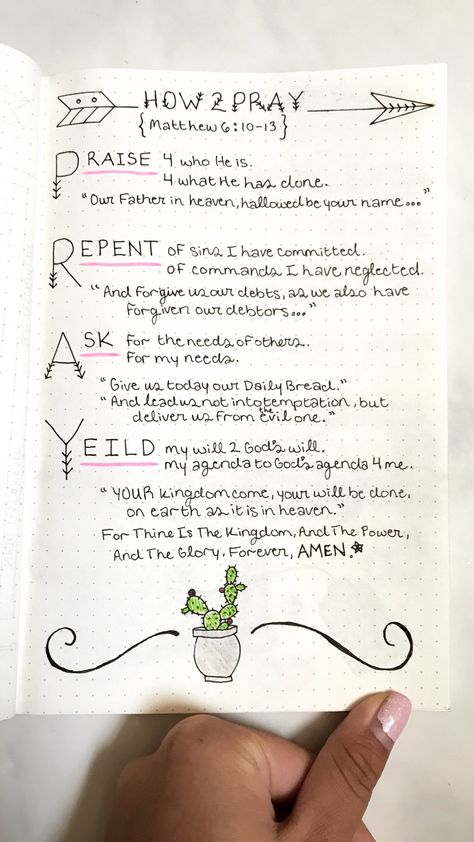 HOW 2 PRAY
{Matthew 6:10-13}
PRAISE 4 who He is.
4 what He has done.
"Our Father in heaven, hallowed be your name..."
REPENT of sins I have committed.
of commands I have neglected.
"And forgive us our debts, as we also have
forgiven our debtors..."
ASK for the needs of others.
For my needs.
"Give us today our Daily Bread."
"And lead us not into temptation, but
deliver us from the evil one."
YEILD my will 2 God's will.
my agenda to God's agenda 4 me.
"YOUR kingdom come, your will be done,
on earth as it is in heaven."
For Thine Is The Kingdom, And The Power,
And The Glory, Forever, AMEN.